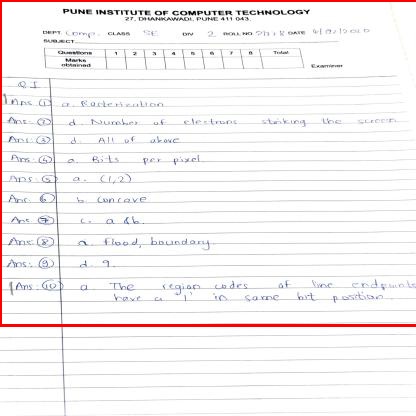 PUNE INSTITUTE OF COMPUTER TECHNOLOGY
27, DHANKAWADI, PUNE 411 043.
DEPT. Comp. CLASS SE DIV 2 ROLL NO. DATE
SUBJECT
Questions 1 2 3 4 5 6 7 8 Total
Marks obtained
Examiner
Q I
Ans ① a. Rasterization
Ans: ② d. Number of electrons striking the screen
Ans: ③ d. All of above
Ans: ④ a. Bits per pixel
Ans: ⑤ a. (1,2)
Ans: ⑥ b. Concave
Ans ⑦ c. a &b.
Ans: ⑧ a. flood, boundary
Ans: ⑨ d. 9.
Ans: ⑩ a The region codes of line endpoints
have a '1' in same bit position.